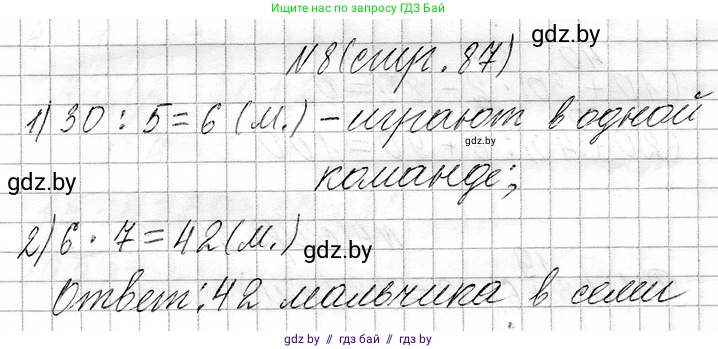 Ищите нас по запросу ГДЗ Бай
gdz.by
№8 (стр. 87)
1) 30 : 5 = 6 (м.) – играют в одной
gdz.by
gdz.by
команде;
2) 6 · 7 = 42 (м.)
gdz.by
Ответ: 42 мальчика в семи
gdz.by // гдз бай // гдз.бай